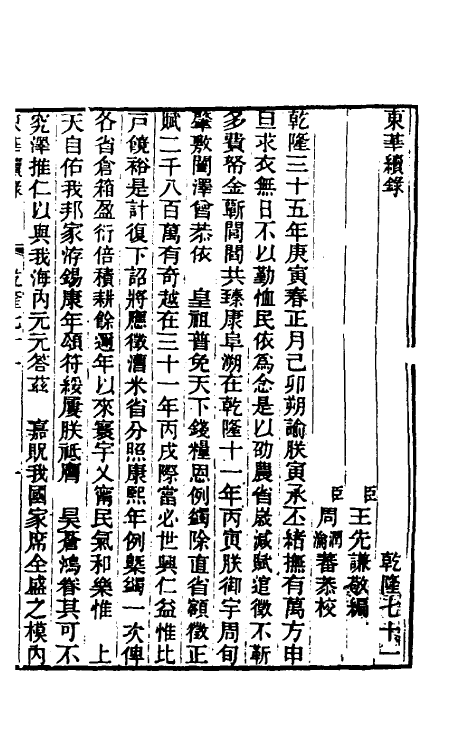 東華續錄　乾隆七十一
臣王先謙敬編
臣周潤蕃周瀹蕃恭校
乾隆三十五年庚寅春正月己卯朔諭朕寅承丕緒撫有萬方申
旦求衣無日不以勤恤民依爲念是以劭農省歲減賦逭徵不靳
多費帑金蘄閭閻共臻康阜溯在乾隆十一年丙寅朕御宇周旬
肇敷闓澤曾恭依　皇祖普免天下錢糧恩例蠲除直省額徵正
賦二千八百萬有奇越在三十一年丙戌際當必世興仁益惟比
戸饒裕是計復下詔將應徵漕米省分照康熙年例槩蠲一次俾
各省倉箱盈衍倍積耕餘邇年以來寰宇乂甯民氣和樂惟　上
天自佑我邦家洊錫康年頌符綏屢朕祗膺　昊蒼鴻眷其可不
究澤推仁以與我海內元元答茲　嘉貺我國家席全盛之模內
東華續錄　乾隆七十一　一